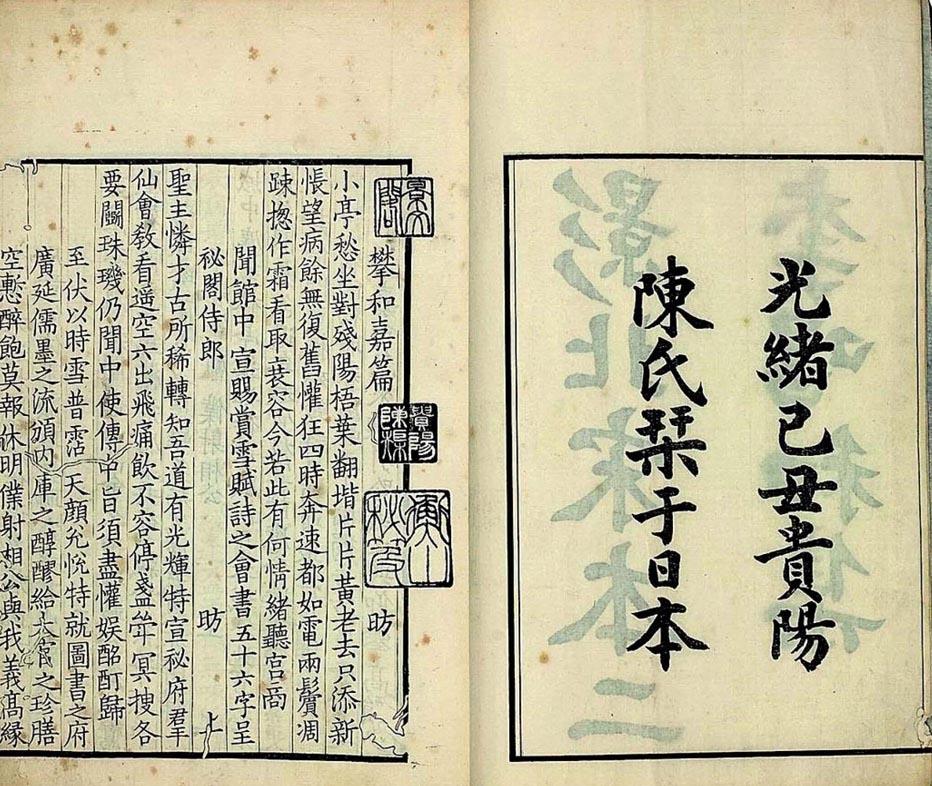 光緒己丑貴陽
陳氏栞于日本
攀和嘉篇 昉
貴陽
陳榘
小亭愁坐對殘陽梧葉翻堦片片黃老去只添新
悵望病餘無復舊懽狂四時奔速都如電兩鬢凋
踈揔作霜看取衰容今若此有何情緒聽宮商
聞館中 宣賜賞雪賦詩之會書五十六字呈
秘閣侍郎 昉 上
聖主憐才古所稀轉知吾道有光輝特宣秘府羣
仙會敎看遥空六出飛痛飲不容停盞斚冥搜各
要鬭珠璣仍聞中使傳中旨須盡懽娱酩酊歸
至伏以時雪普霑 天顔允悅特就圖書之府
廣延儒墨之流頒内庫之醇醪給太官之珍膳
空慙醉飽莫報休明僕射相公與我義髙緣